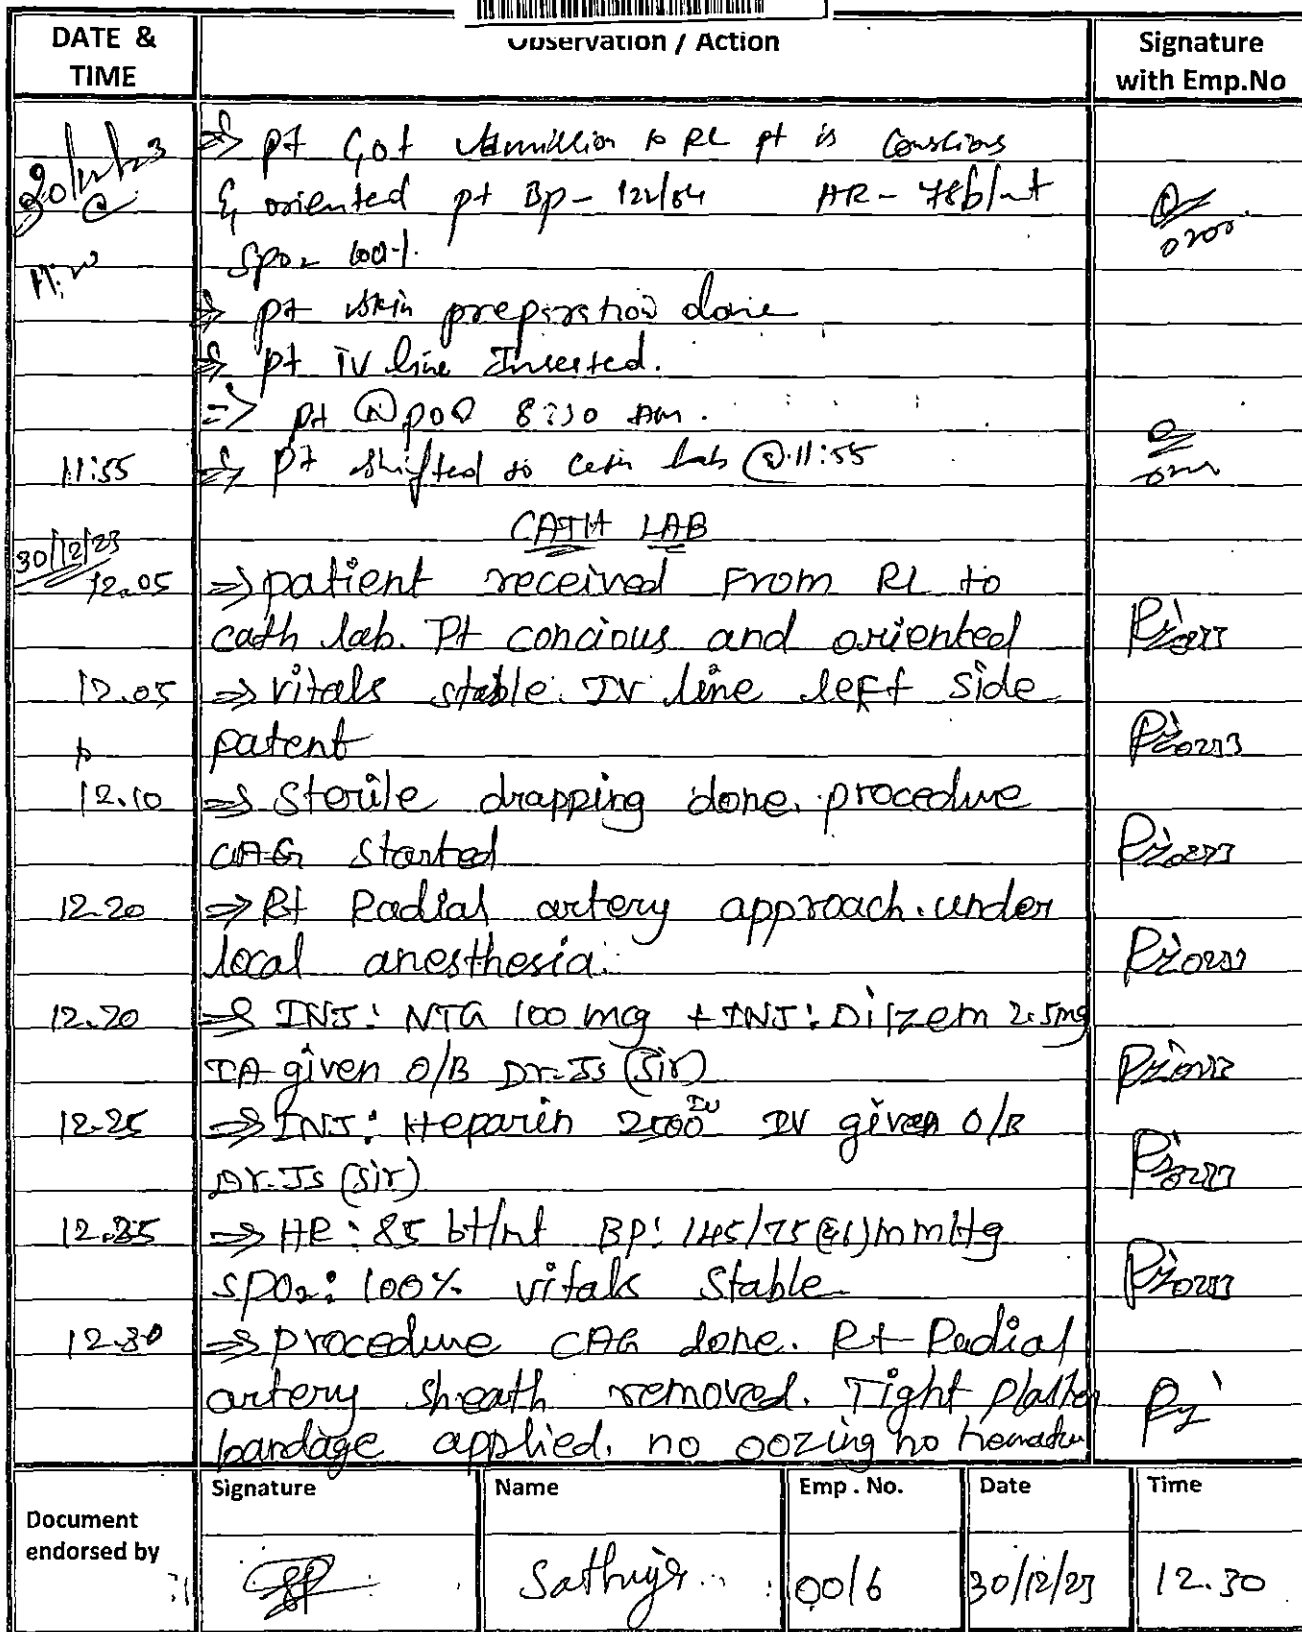 DATE & TIME
Observation / Action
Signature with Emp.No
30/12/23 @
=> pt Got to RL pt is Conscious
& oriented pt Bp - 122/84 HR - 78b/mt
SpO2 100%
=> pt skin preparation done
=> pt IV line Inserted.
=> pt @ 8:30 Am.
11:55 => pt shifted to Cath Lab @ 11:55
CATH LAB
30/12/23
12.05 => patient received From RL to
cath lab. Pt concious and oriented
12.05 => vitals stable. IV line left side
patent
12.10 => Sterile drapping done. procedure
CAG Started
12.20 => Rt Radial artery approach. under
local anesthesia.
12.20 => INJ: NTG 100 mcg + INJ: Dilzem 2.5mg
IA given O/B Dr. Js (Sir)
12.25 => INJ: Heparin 2500 IU IV given O/B
Dr. Js (Sir)
=> HR: 85 bt/mt BP: 145/75 mmHg
SPO2: 100% vitals Stable
12.30 => procedure CAG done. Rt Radial
artery sheath removed. Tight plaster
bandage applied. no oozing no
Document endorsed by
Signature
Name
Emp . No.
Date
Time
0016
30/12/23
12.30